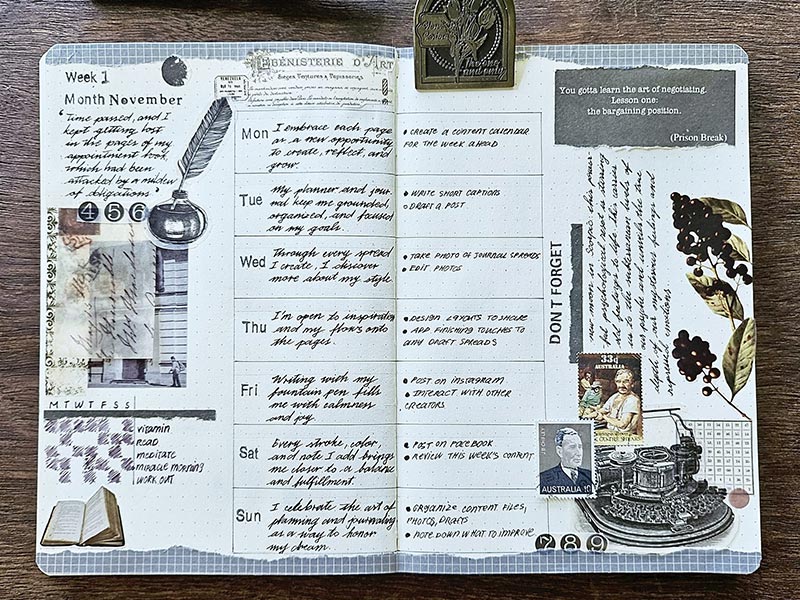 Week 1
Month November
"Time passed, and I
kept getting lost
in the pages of my
appointment book
which had been
attacked by a
of obligations."
4 5 6
M T W T F S S
vitamin
READ
meditate
miracle morning
WORK OUT
ÉBÉNISTERIE D'ART
Sièges Tentures & Tapisseries
Mon
I embrace each page
as a new opportunity
to create, reflect, and
grow.
• CREATE A CONTENT CALENDAR
FOR THE WEEK AHEAD
Tue
My planner and jour-
nal keep me grounded,
organized, and focused
on my goals.
• WRITE SHORT CAPTIONS
• DRAFT A POST
Wed
Through every spread
I create, I discover
more about my style.
• TAKE PHOTO OF JOURNAL SPREADS
• EDIT PHOTOS
Thu
I'm open to inspiration
and my flows onto
the pages.
• DESIGN LAYOUTS TO SHARE
• ADD FINISHING TOUCHES TO
ANY DRAFT SPREADS
Fri
Writing with my
fountain pen fills
me with calmness
and joy.
• POST ON INSTAGRAM
• INTERACT WITH OTHER
CREATORS
Sat
Every stroke, color,
and note I add brings
me closer to a balance
and fulfillment.
• POST ON FACEBOOK
• REVIEW THIS WEEK'S CONTENT
Sun
I celebrate the art of
planning and journaling
as a way to honor
my dream.
• ORGANIZE CONTENT FILES,
PHOTOS, DRAFTS
• NOTE DOWN WHAT TO IMPROVE
7 8 9
the one
and only
You gotta learn the art of negotiating.
Lesson one:
the bargaining position.
(Prison Break)
DON'T FORGET
new moon in Scorpio
psychological
of life. She carries
us to the subterranean levels of
our psyche and unveils the true
depths of our mysterious feelings and
repressed emotions.
33c
AUSTRALIA
AUSTRALIA 10